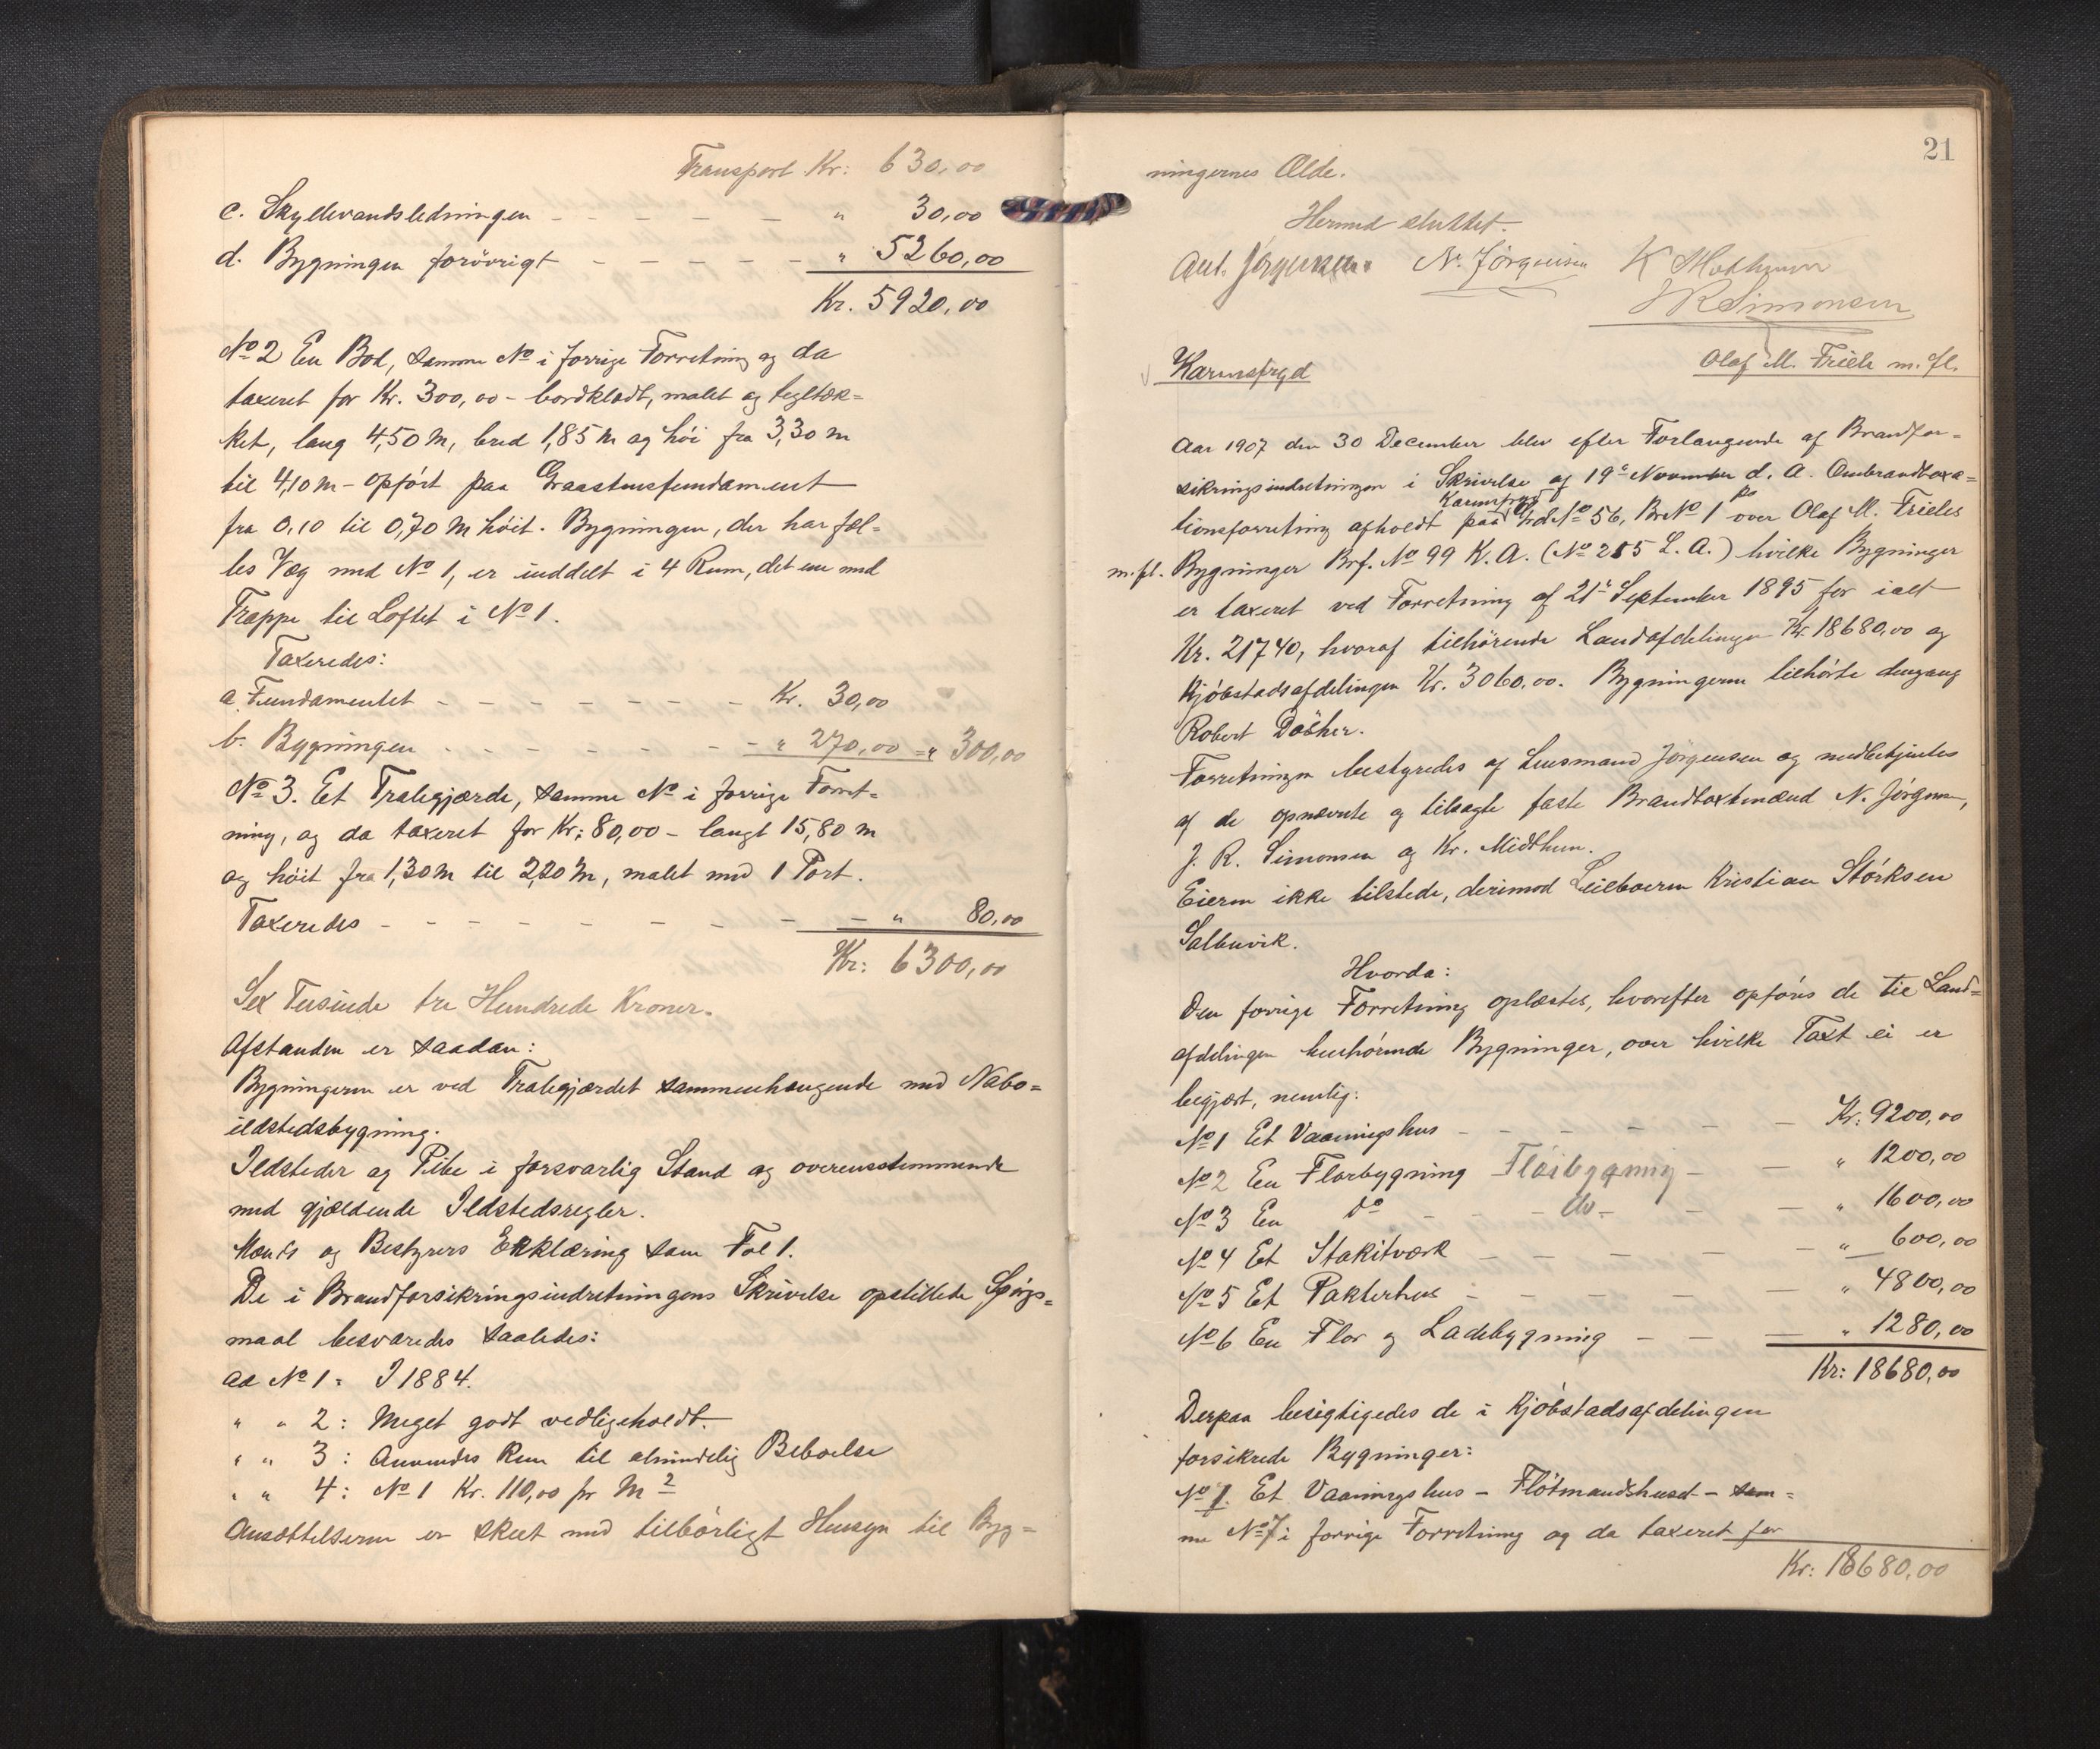 Transport Kr: 630,00
c. Skyllevandsledningen - - - - - " 30,00
d. Bygningen forövrigt - - - - - " 5260,00
Kr. 5920,00
No 2 En Bod, samme No i forrige Forretning og da
taxeret for Kr. 300,00 - bordklædt, malet og tegltæk=
ket, lang 4,50 M, bred 1,85 M og höi fra 3,30 m
til 4,10 m - opført paa Graastensfundament
fra 0,10 til 0,70 M höit. Bygningen, der har fæl=
les Væg med No 1, er inddelt i 4 Rum, det ene med
Trappe til Loftet i No 1.
Taxeredes:
a. Fundamentet - - - - - - - Kr. 30,00
b. Bygningen - - - - - - - " 270,00 = " 300,00
No 3. Et Traligjærde, samme No i forrige Forret=
ning, og da taxeret for Kr: 80,00 - langt 15,80 m
og höit fra 1,30 M til 2,20 m, malet med 1 Port.
Taxeredes - - - - - - - - " 80,00
Kr: 6300,00
Sex Tusinde tre Hundrede Kroner.
Afstanden er saadan:
Bygningerne er ved Traligjærdet sammenhængende med Nabo=
ildstedsbygning.
Ildsteder og Pibe i forsvarlig Stand og overensstemmende
med gjældende Ildstedsregler.
Mænds og Bestyrers Erklæring som Fol 1.
De i Brandforsikringsindretningens Skrivelse opstillede Spörgs=
maal besvaredes saaledes:
ad No 1: I 1884.
" " 2: Meget godt vedligeholdt.
" " 3: Anvendes kun til almindelig Beboelse
" " 4: No 1 Kr. 110,00 pr M2
Ansættelserne er skeet med tilbörligt Hensyn til Byg=
21
ningernes Ælde.
Hermed sluttet.
Ant. Jørgensen. N. Jörgensen K Midthun
J R Simonsen
Karnsfryd Olaf M. Friele m. fl.
Aar 1907 den 30 December blev efter Forlangende af Brandfor=
sikringsindretningen i Skrivelse af 19de November d. A. Ombrandtaxa=
tionsforretning afholdt paa Karnsfryd Grd No 56, Br No 1 over Olaf M. Frieles
m. fl. Bygninger Brf. No 99 K. A. (No 255 L. A.) hvilke Bygninger
er taxeret ved Forretning af 21de September 1895 for ialt
Kr. 21740, hvoraf tilhörende Landafdelingen Kr. 18680,00 og
Kjöbstadsafdelingen Kr. 3060,00. Bygningerne tilhörte dengang
Robert Döscher.
Forretningen bestyredes af Lensmand Jörgensen og medbetjentes
af de opnævnte og tilsagte faste Brandtaxtmænd N. Jörgensen,
J. R. Simonsen og Kr. Midthun.
Eieren ikke tilstede, derimod Leilboeren Kristian Störksen
Salbuvik.
Hvorda:
Den forrige Forretning oplæstes, hvorefter opföres de til Land=
afdelingen henhörende Bygninger, over hvilke Taxt ei er
begjært, nemlig:
No 1 Et Vaaningshus - - - - - Kr: 9200,00
No 2 En Florbygning Florbygning - - " 1200,00
No 3 En do - - - do - - - " 1600,00
No 4 Et Stakitværk - - - - - " 600,00
No 5 Et Pakterhus - - - - - " 4800,00
No 6 En Flor og Ladebygning - - - " 1280,00
Kr: 18680,00
Derpaa besigtigedes de i Kjöbstadsafdelingen
forsikrede Bygninger:
No 1. Et Vaaningshus - Flötmandshuset - sam=
me No 7 i forrige Forretning og da taxeret for
Kr: 18680,00